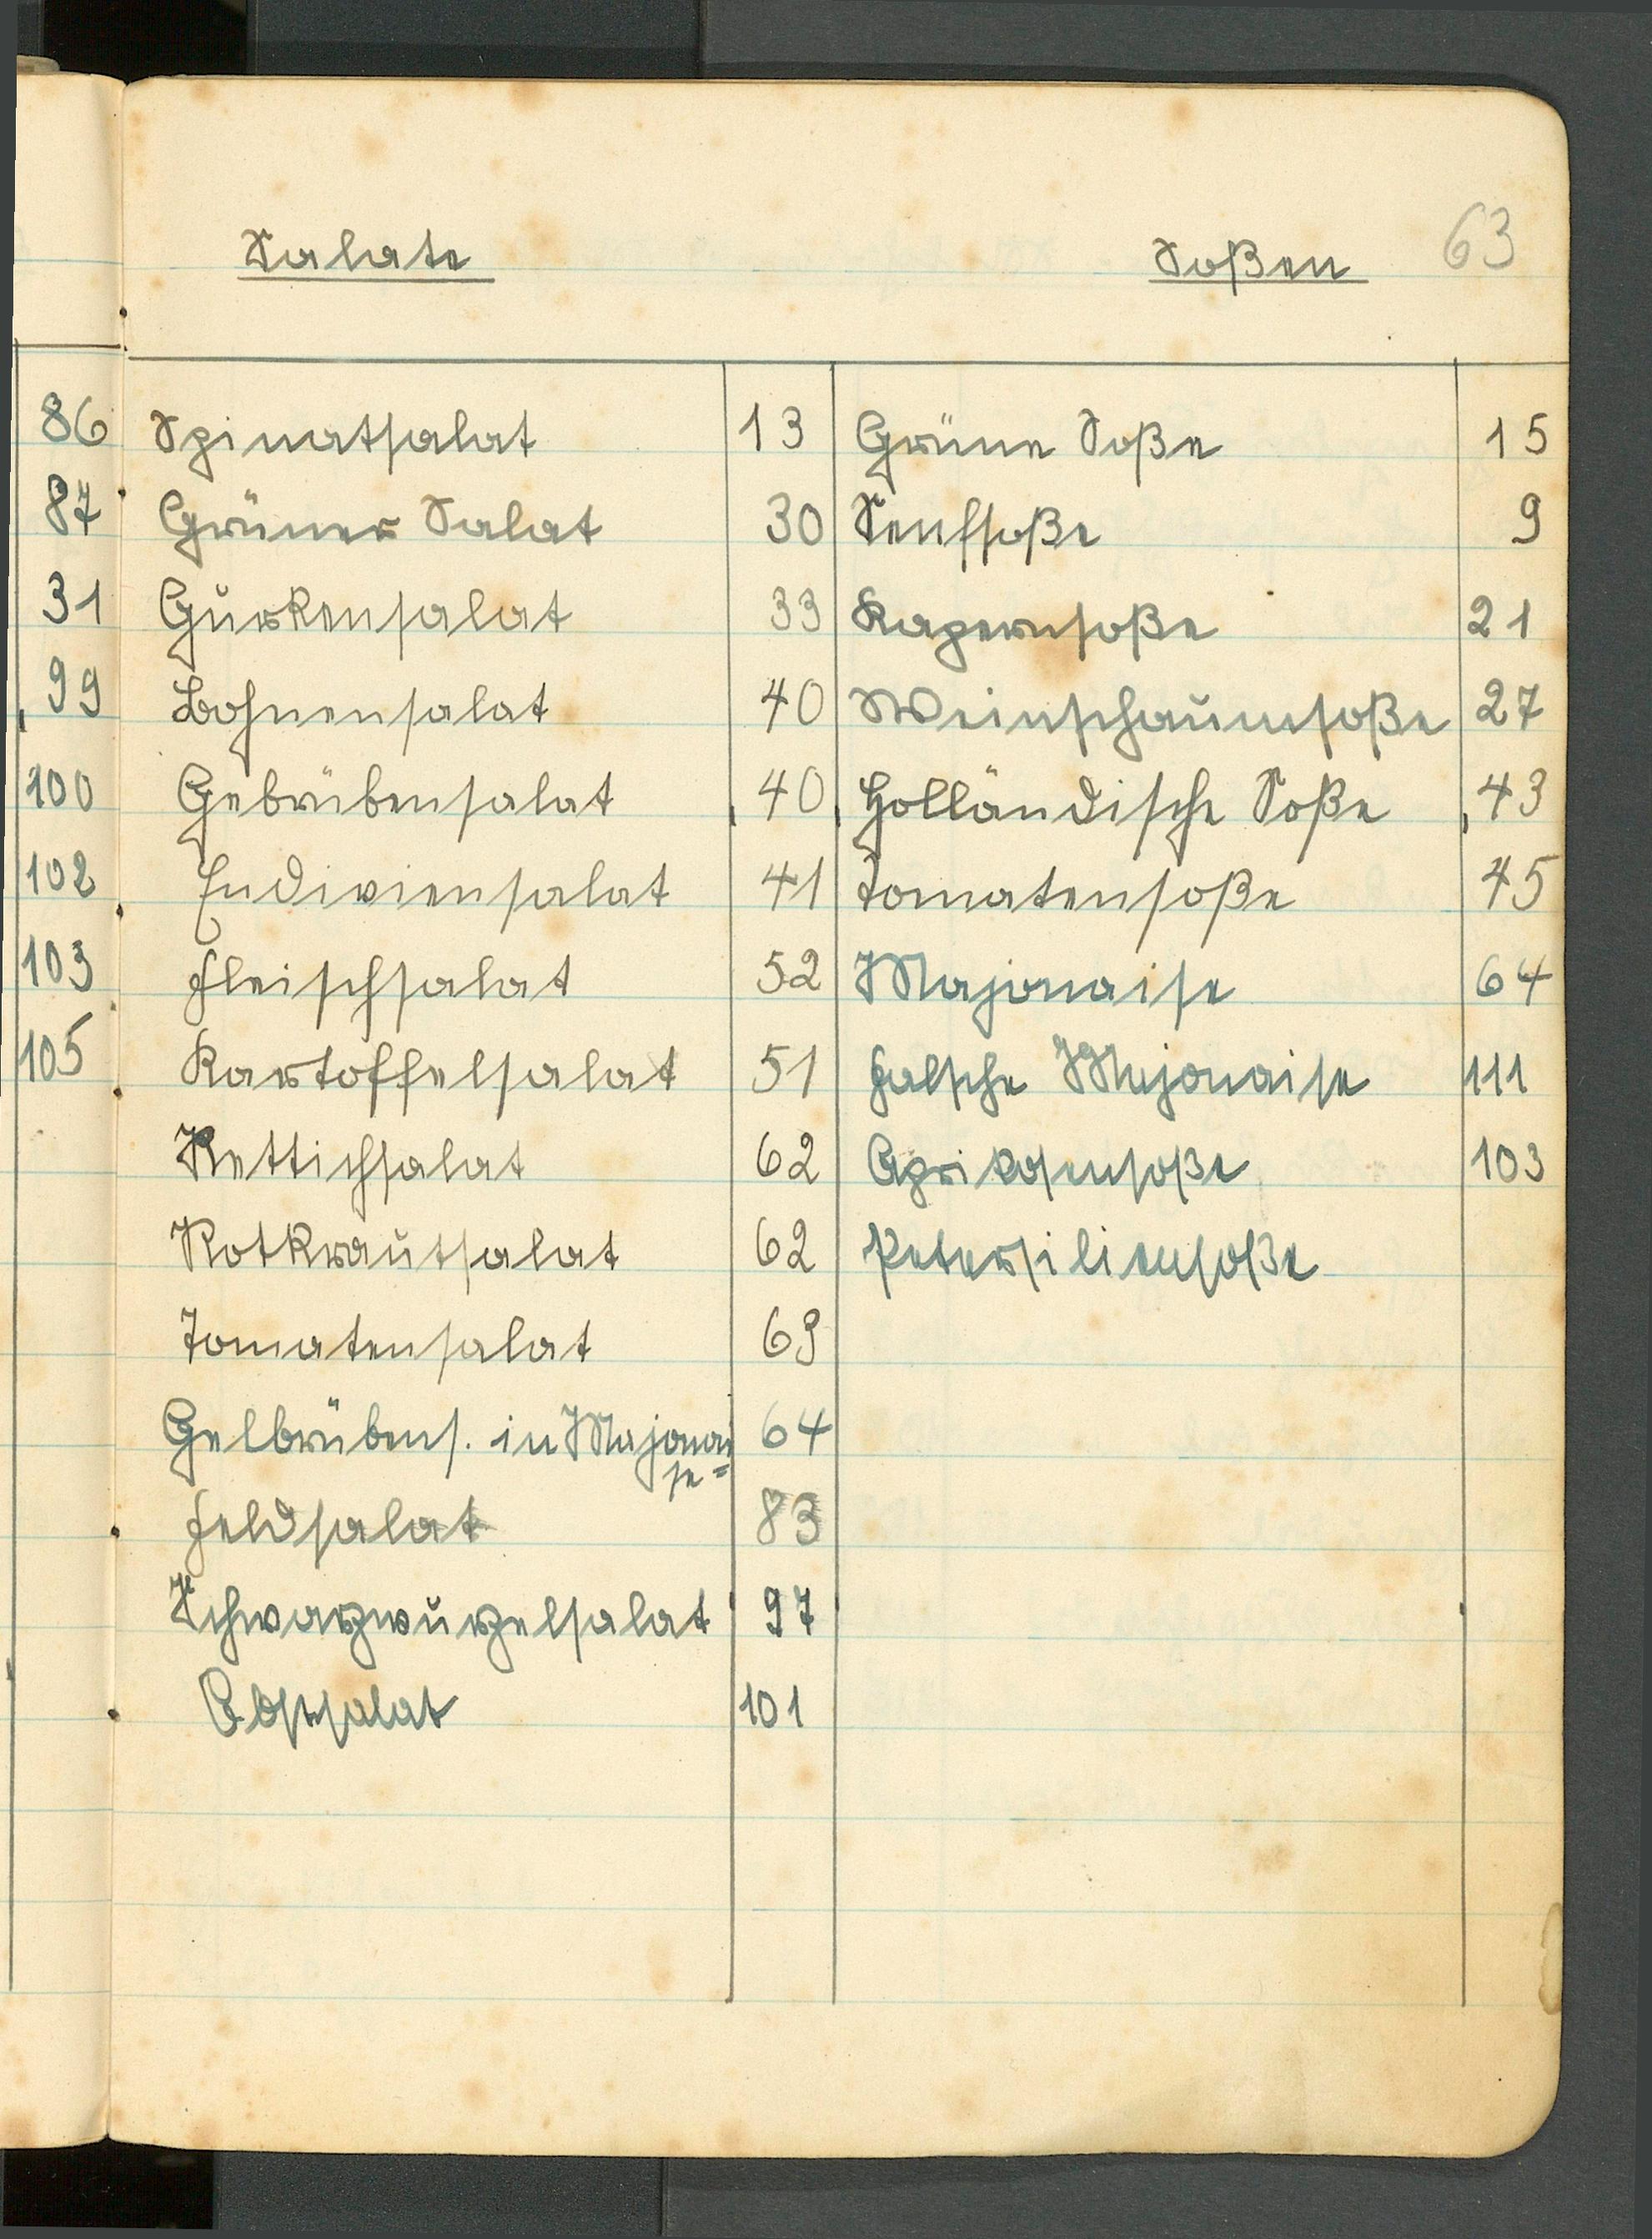 63
Salate Soßen
86 Spinatsalat 13 Grüne Soße 15
87 Grüner Salat 30 Senfsoße 9
31 Gurkensalat 33 Kapernsoße 21
99 Bohnensalat 40 Weinschaumsoße 27
100 Gebrübensalat 40 Holländische Soße 43
102 Endiviensalat 41 Tomatensoße 45
103 Fleischsalat 52 Majonaise 64
105 Kartoffelsalat 51 Falsche Majonaise 111
Rettichsalat 62 Aprikosensoße 103
Rotkrautsalat 62 Petersiliensoße
Tomatensalat 69
Gelbrübens. in Majonai 64
se=
Feldsalat 83
Schwarzwurzelsalat 97
Obstsalat 101